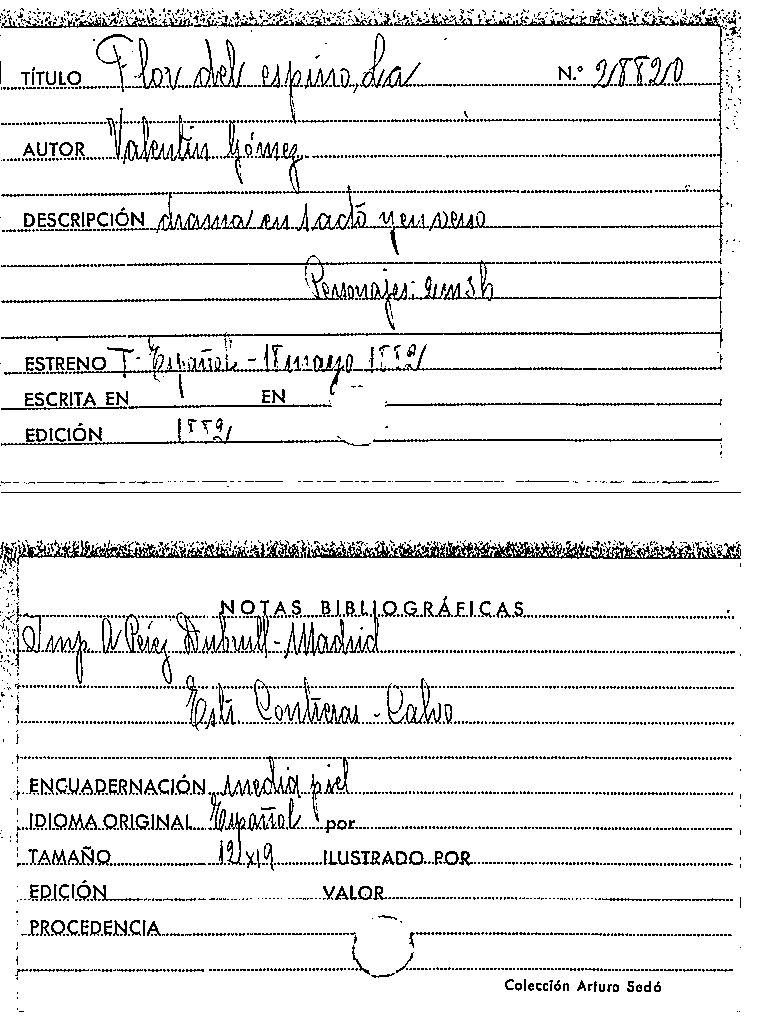 TÍTULO Flor del espino, La N.º 28820
AUTOR Valentín Gómez
DESCRIPCIÓN drama en 1 acto y en verso
Personajes: 2m 3h
ESTRENO T. Español - 18 mayo 1882
ESCRITA EN EN
EDICIÓN 1882
NOTAS BIBLIOGRÁFICAS
Imp. A Pérez Dubrull - Madrid
Estr. Contreras - Calvo
ENCUADERNACIÓN media piel
IDIOMA ORIGINAL Español por
TAMAÑO 12x19 ILUSTRADO POR
EDICIÓN VALOR
PROCEDENCIA
Colección Arturo Sedó